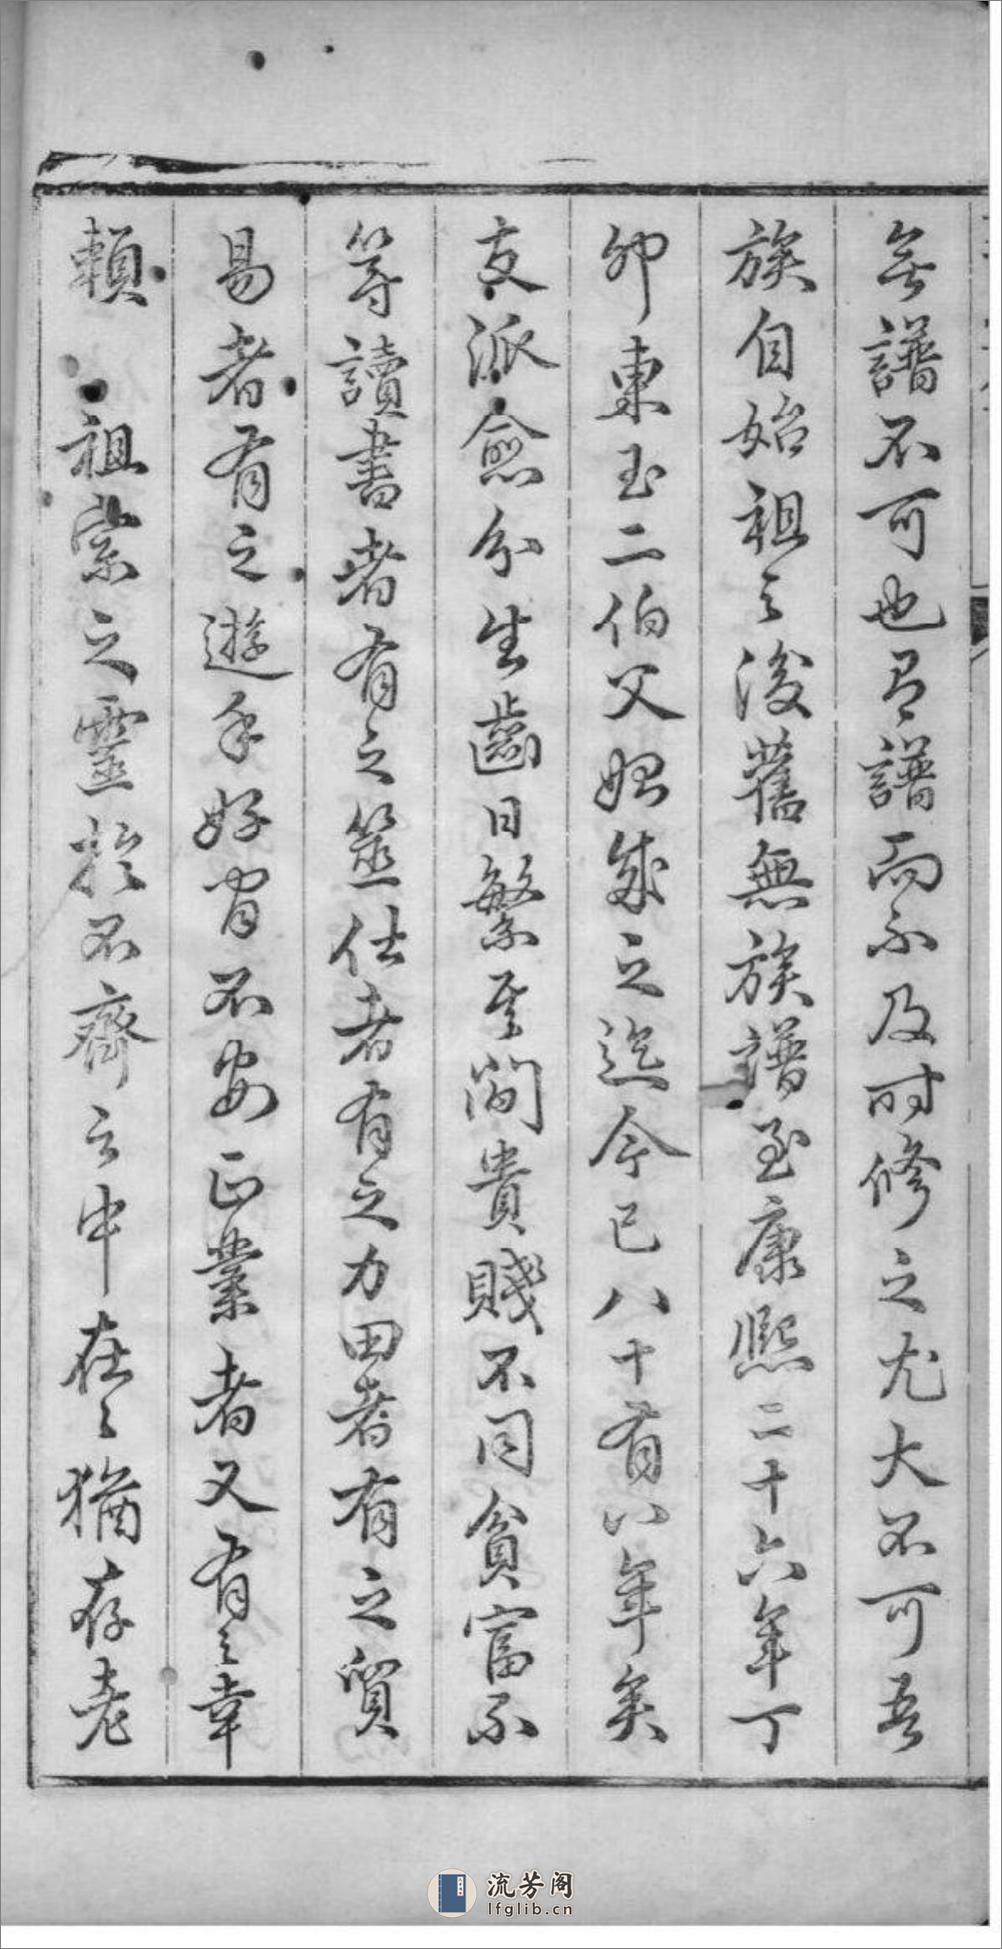 無譜不可也有譜而不及时修之尤大不可吾
族自始祖之後舊無族譜至康熙二十六年丁
卯東玉二伯父始成之迄今已八十有八年矣
支派愈分生齒日繁其間貴賤不同貧富不
等讀書者有之筮仕者有之力田者有之貿
易者有之遊手好閒不安正業者又有之幸
賴 祖宗之靈於不齊之中在々猶存老
流芳阁
lfglib.cn